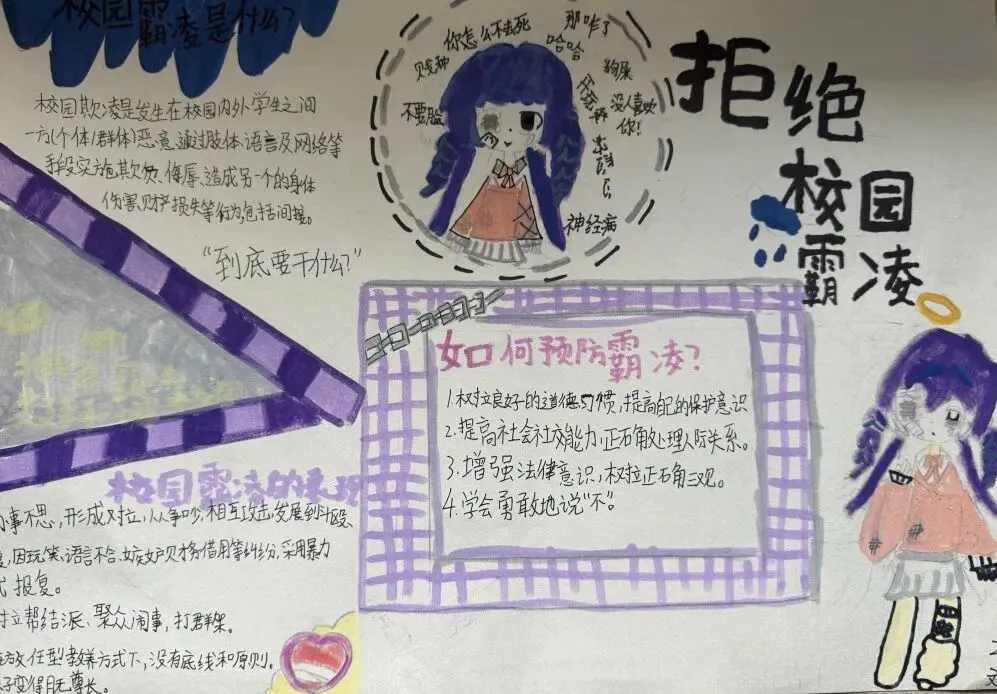 校园霸凌是什么?
校园欺凌是发生在校园内外学生之间
一方(个体)群体)恶意通过肢体语言及网络等
手段实施欺负、侮辱、造成另一个的身体
伤害财产损失等行为,包括间接。
"到底要干什么?"
你怎么不去死
那咋了
哈哈
贱种
不要脸
没人喜欢
你!
神经病
拒绝
校园
霸凌
如何预防霸凌?
1.树立良好的道德习惯,提高自己的保护意识
2.提高社会社交能力,正确处理人际关系。
3.增强法律意识,树立正确三观。
4.学会勇敢地说"不"。
校园霸凌的表现
事不思,形成对立,从争吵,相互攻击,发展到斗殴、
因玩笑、语言不合、嫉妒财务借用等纠纷,采用暴力
报复。
立帮结派、聚众闹事,打群架。
放任型教养方式下,没有底线和原则。
子变得目无尊长。